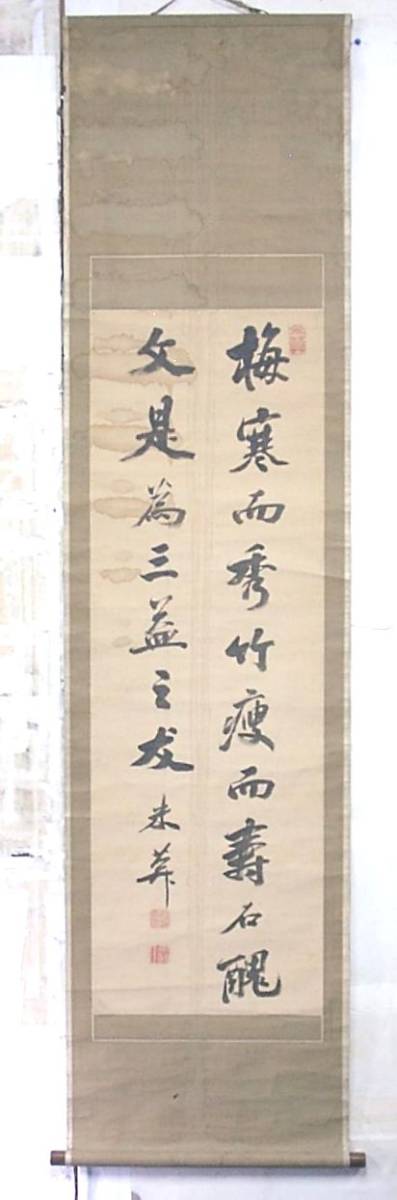 梅寒而秀竹瘦而壽石醜
文是為三益之友 米葊